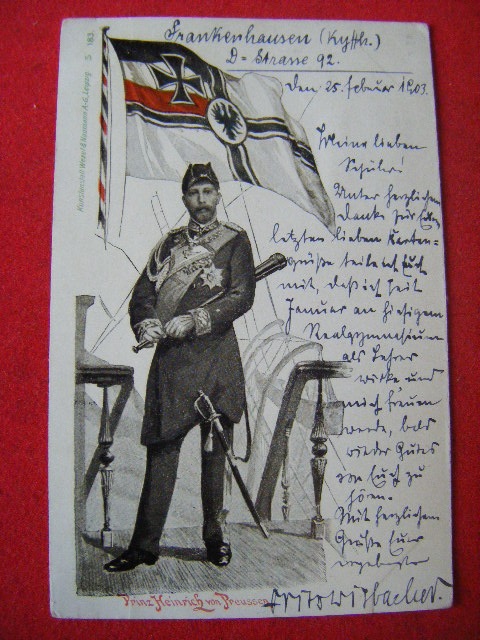 S 183.
Frankenhausen (Kyffh.)
D - Strasse 92.
den 25. Februar 1903.
Meine lieben
Schüler!
Unter herzlichem
Danke für
letzten lieben Karten-
grüße teile ich Euch
mit, daß ich seit
Januar an hiesigem
Realgymnasium
als Lehrer
wirke und
mich freuen
werde, bald
wieder Gutes
von Euch zu
hören.
Mit herzlichem
Gruße Euer
ergebenster
Prinz Heinrich von Preussen